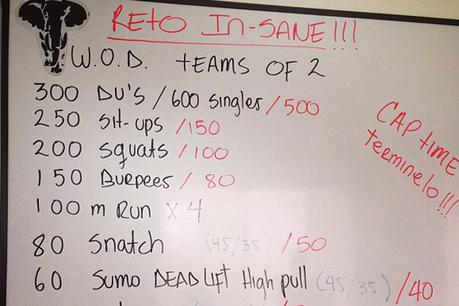 RETO IN-SANE!!!
W.O.D. TEAMS OF 2
300 DU'S / 600 singles / 500
250 Sit-ups / 150
200 Squats / 100
150 Burpees / 80
100 m Run x 4
80 Snatch (45/35) / 50
60 Sumo DEADLIFT High pull (45/35) / 40
CAP TIME
Terminelo!!!